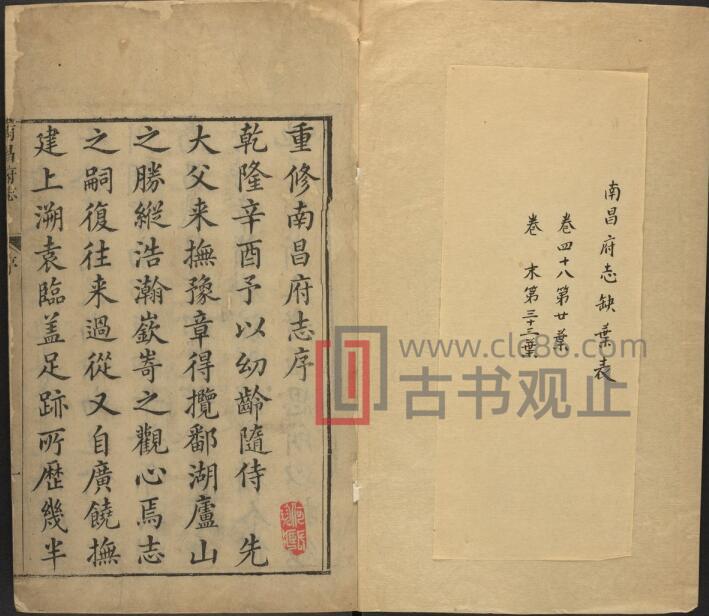 南昌府志缺葉表
卷四十八第廿葉
卷末第三十三葉
重修南昌府志序
乾隆辛酉予以幼齡隨侍 先
大父来撫豫章得攬鄱湖廬山
之勝縱浩瀚嶔嵜之觀心焉志
之嗣復往来過從又自廣饒撫
建上溯袁臨盖足跡所歷幾半
南昌府志
序
www.clc86.com
古书观止